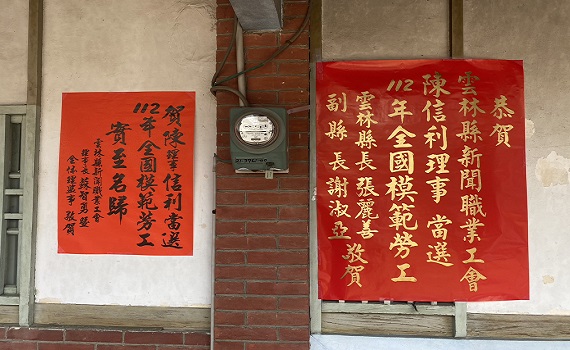 恭賀
雲林縣新聞職業工會
陳信利理事 當選
112年全國模範勞工
雲林縣長 張麗善
副縣長 謝淑亞 敬賀
賀陳理事信利當選
112年全國模範勞工
實至名歸
雲林縣新聞職業工會
全体理監事 敬賀